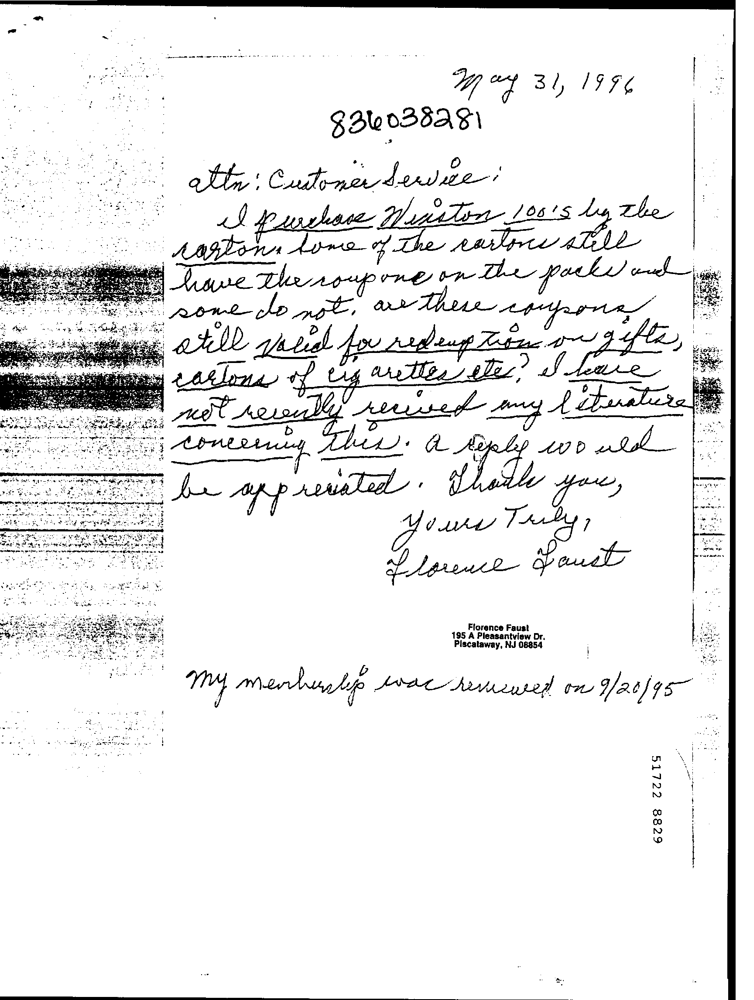 May 31, 1996
836038281
attn: Customer Service:
I purchase Winston 100's by the
cartons some of the cartons still
have the coupons on the packs and
some do not, are these coupons
still valid for redemption on gifts,
cartons of cigarettes etc? I have
not recently recived any literature
concerning this. a reply would
be appreciated. Thank you,
Yours Truly,
Florence Faust
Florence Faust
195 A Pleasantview Dr.
Piscataway, NJ 08854
My membership was renewed on 9/20/95
51722 8829